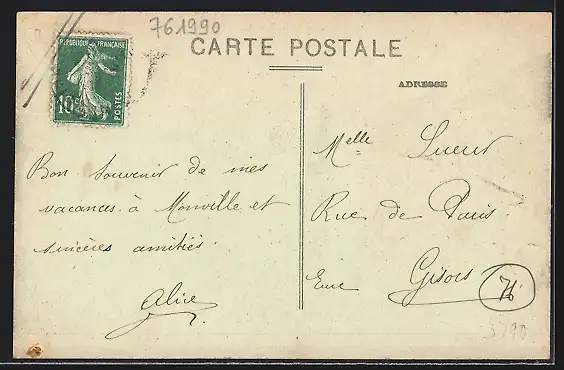 761990
CARTE POSTALE
ADRESSE
REPUBLIQUE FRANÇAISE
10c
POSTES
Bon souvenir de mes
vacances à Monville et
sincères amitiés.
Alice
Melle Lueur
Rue de Paris.
Gisors
Eure
76